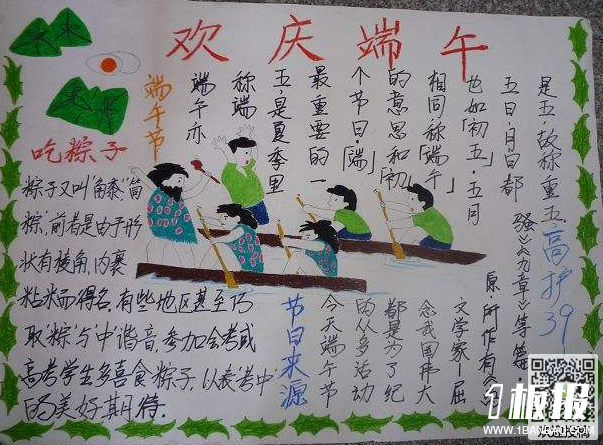 欢庆端午
端午节
端午亦
称端
五,是夏季里
最重要的一
个节日。「端」
的意思和「初」
相同,称「端午」
也如「初五」;五月
五日,月、日都
是五,故称重五
高护39
吃粽子
粽子又叫"角黍"、"筒
粽",前者是由于形
状有棱角,内裹
粘米而得名。有些地区甚至巧
取"粽"与"中"谐音,参加会考或
高考学生多喜食粽子,以表"考中"
的美好期待。
节日来源
今天端午节
的众多活动
都是为了纪
念我国伟大
文学家一屈
原。所作有《
骚》《九章》等
1板报
WWW.1BANBAO.COM